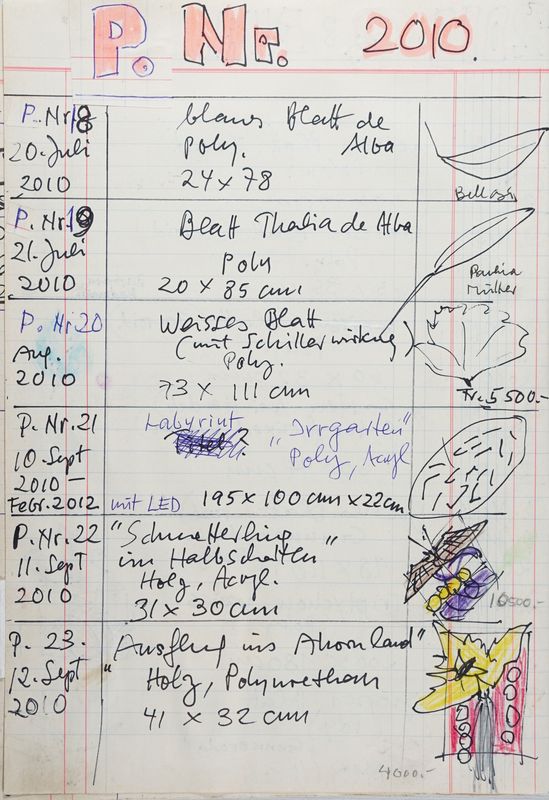 P. Nr. 2010.
P. Nr. 18
20. Juli
2010
blaues Blatt de
Alba
Poly.
24 x 78
P. Nr. 19
21. Juli
2010
Blatt Thalia de Alba
Poly
20 x 85 cm
Paulina
Müller
P. Nr. 20
Aug.
2010
Weisses Blatt
(mit Schillerwirkung)
Poly.
73 x 111 cm
Fr. 5500.-
P. Nr. 21
10. Sept
2010 –
Febr. 2012
Labyrint
"Irrgarten"
Poly, Acryl
mit LED 195 x 100 cm x 22 cm
P. Nr. 22
11. Sept
2010
"Schmetterling
im Halbschatten"
Holz, Acryl.
31 x 30 cm
10500.-
P. 23.
12. Sept
2010
"Ausflug ins Ahornland"
Holz, Polyurethan
41 x 32 cm
4000.-